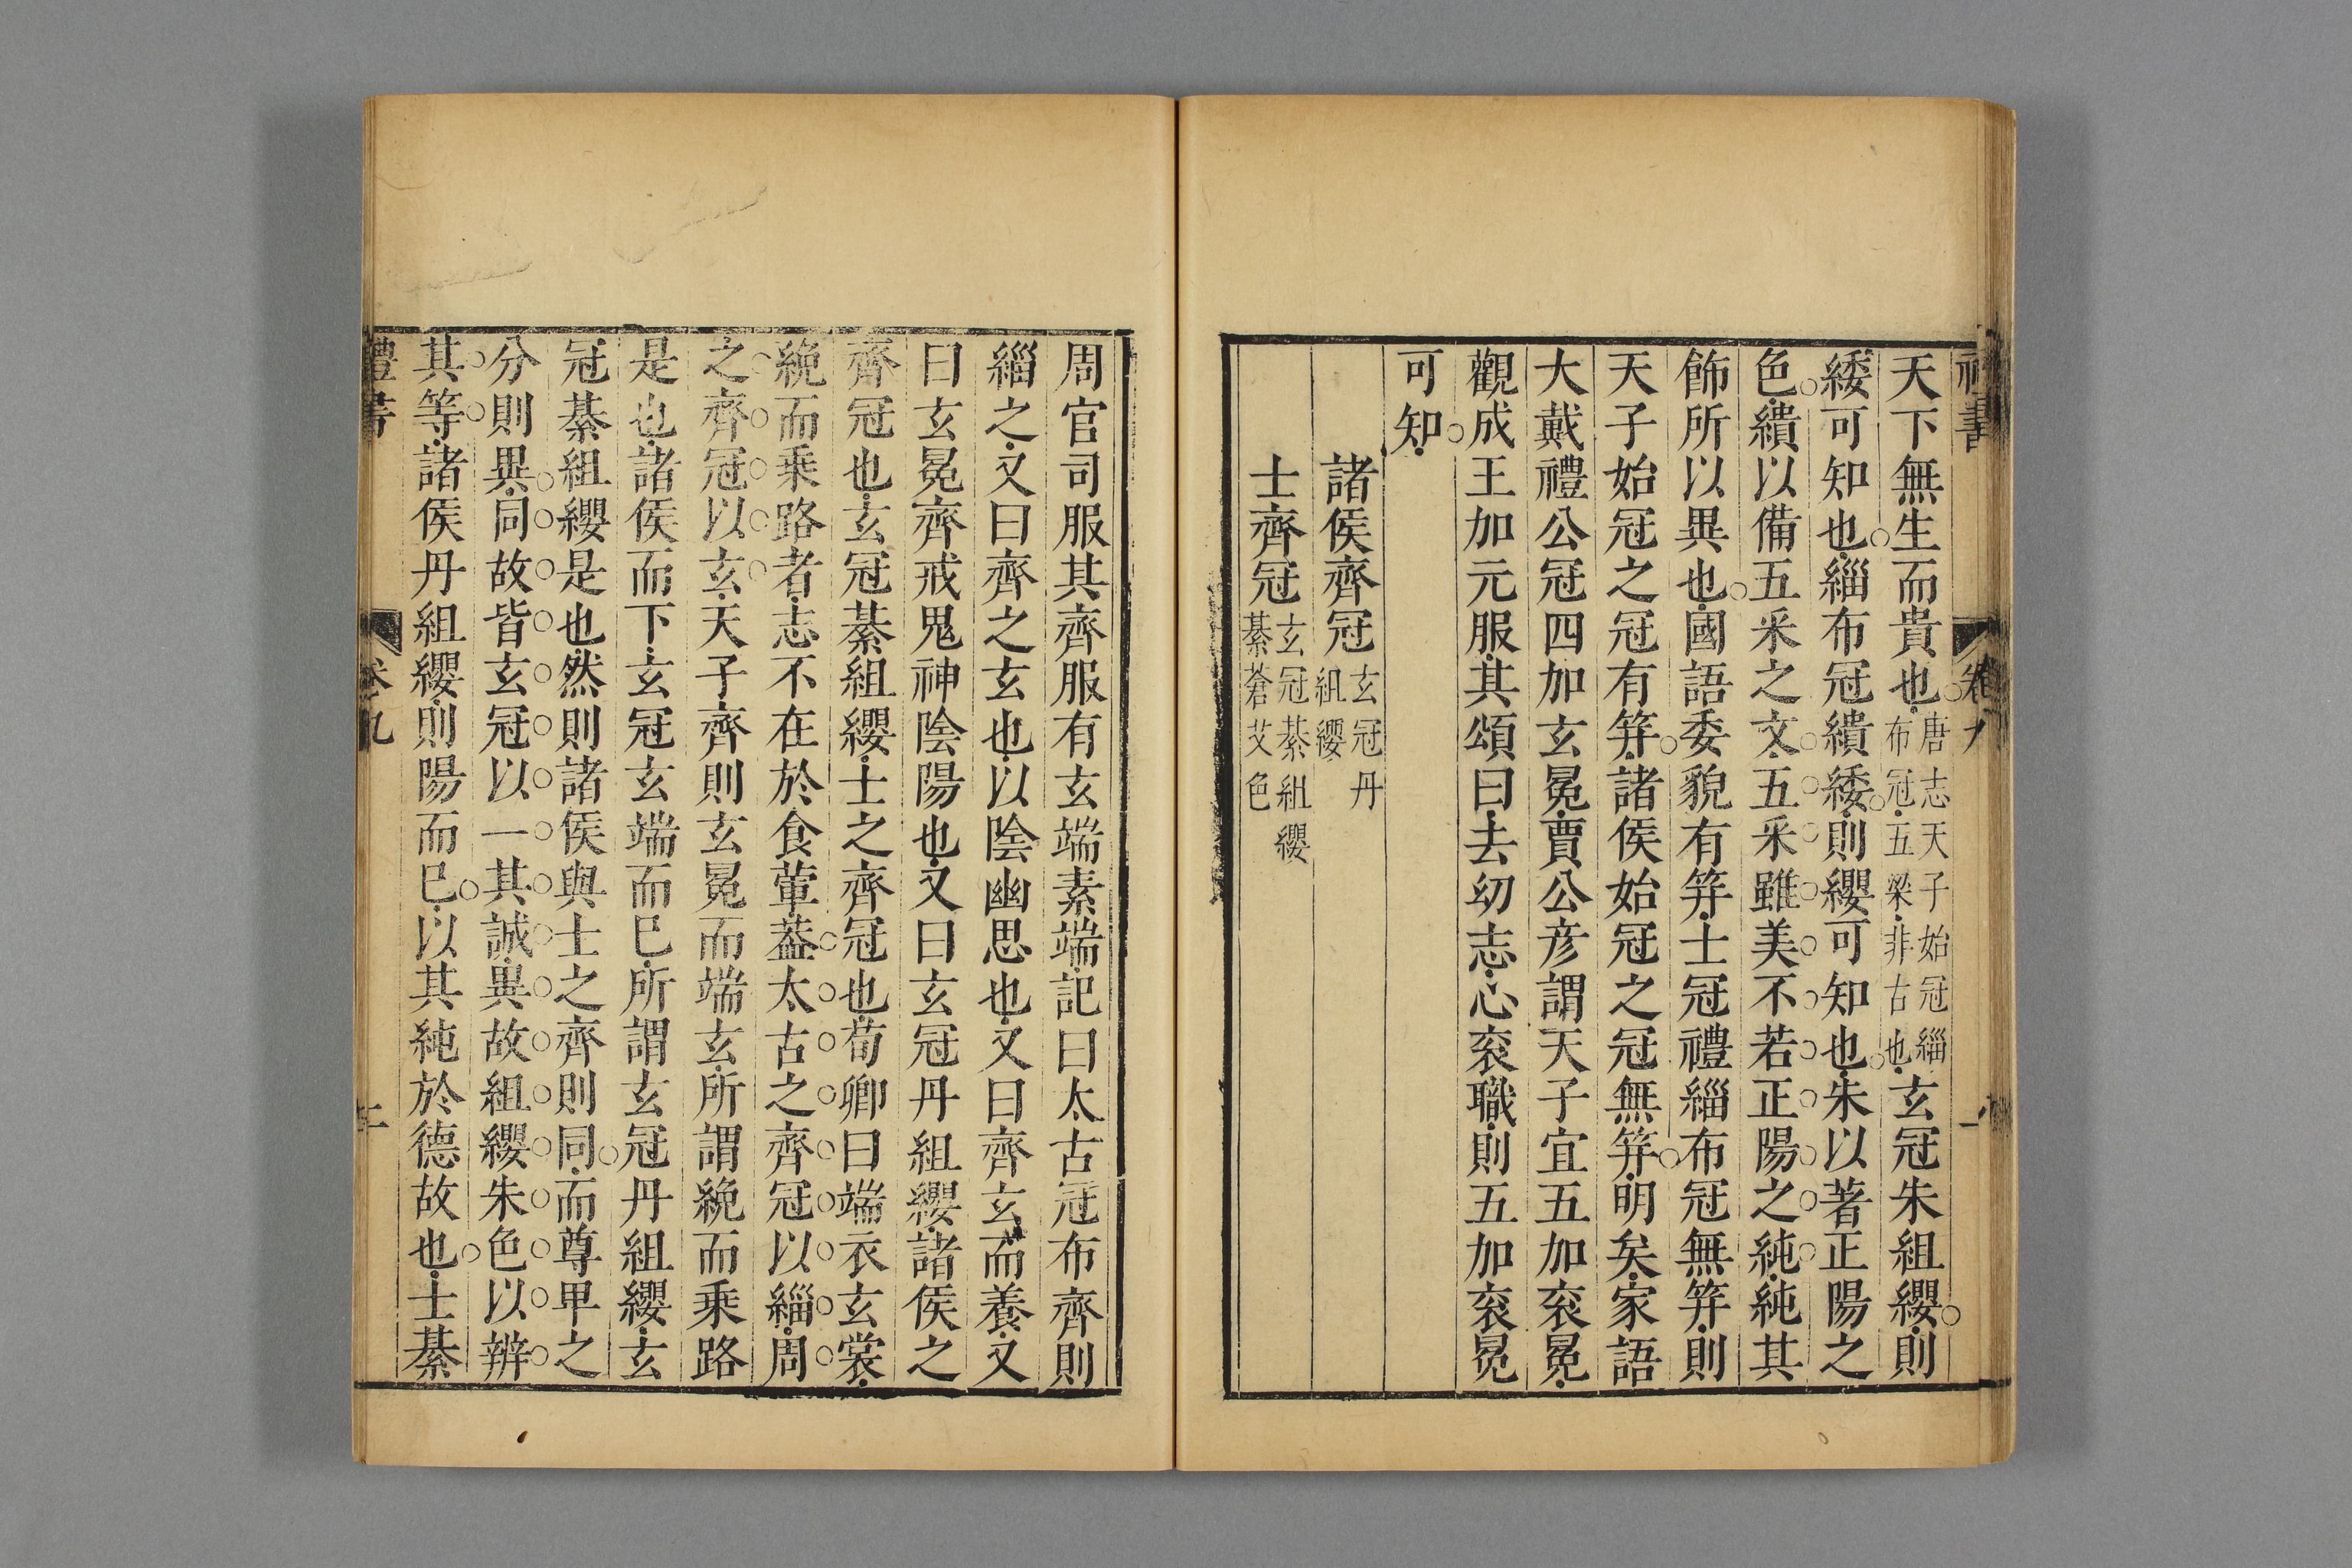 天下無生而貴也唐志天子始冠緇布冠五梁非古也玄冠朱組纓則
緌可知也緇布冠繢緌則纓可知也朱以著正陽之
色繢以備五采之文五采雖美不若正陽之純純其
飾所以異也國語委貌有笄士冠禮緇布冠無笄則
天子始冠之冠有笄諸侯始冠之冠無笄明矣家語
大戴禮公冠四加玄冕賈公彥謂天子宜五加衮冕
觀成王加元服其頌曰去幼志心衮職則五加衮冕
可知
諸侯齊冠玄冠丹組纓
士齊冠玄冠綦組纓綦蒼艾色
周官司服其齊服有玄端素端記曰太古冠布齊則
緇之又曰齊之玄也以陰幽思也又曰齊玄而養又
曰玄冕齊戒鬼神陰陽也又曰玄冠丹組纓諸侯之
齊冠也玄冠綦組纓士之齊冠也荀卿曰端衣玄裳
絻而乘路者志不在於食葷葢太古之齊冠以緇周
之齊冠以玄天子齊則玄冕而端玄所謂絻而乘路
是也諸侯而下玄冠玄端而已所謂玄冠丹組纓玄
冠綦組纓是也然則諸侯與士之齊則同而尊卑之
分則異同故皆玄冠以一其誠異故組纓朱色以辨
其等諸侯丹組纓則陽而已以其純於德故也士綦
禮書
卷九
二